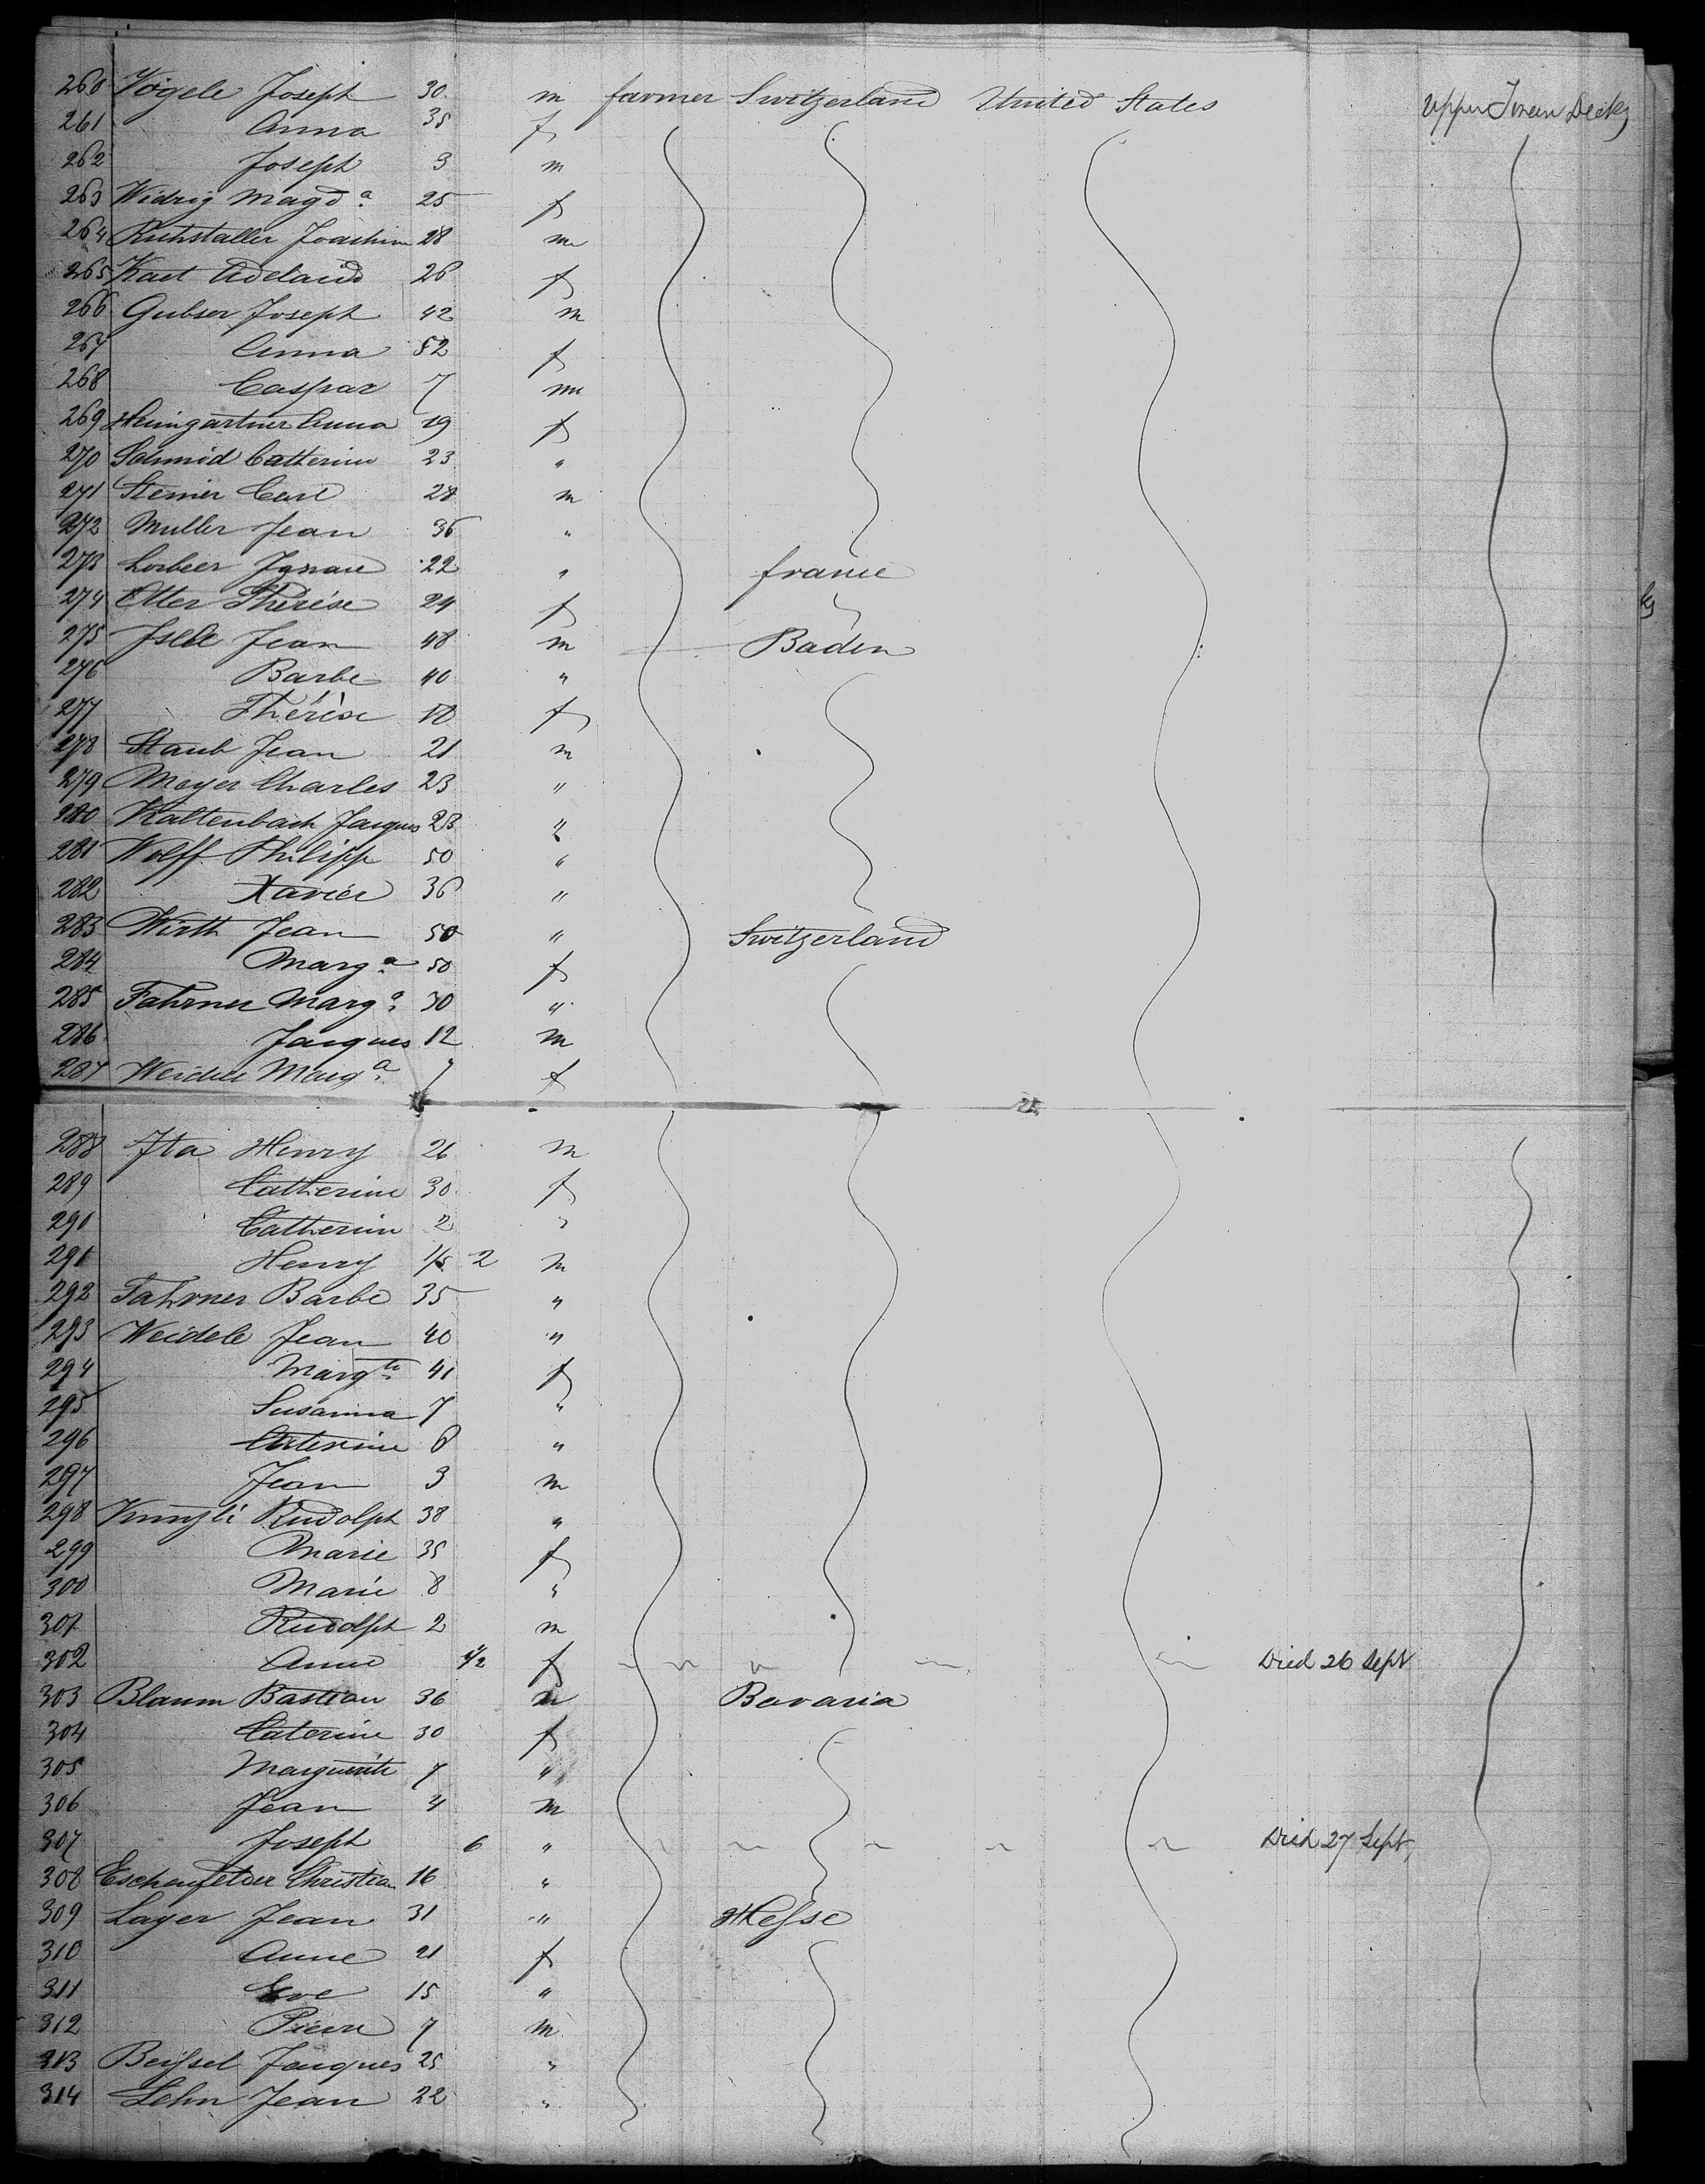 260 Vögele Joseph 30 m farmer Switzerland United States Upper Tween Deck
261 Anna 35 f
262 Joseph 3 m
263 Widrig Magda 25 f
264 Ruhstaller Joachim 28 m
265 Kaet Adelaid 26 f
266 Gubser Joseph 42 m
267 Anna 52 f
268 Caspar 7 m
269 Heimgartner Anna 19 f
270 Schmid Catherine 23 "
271 Steiner Carl 28 m
272 Muller Jean 36 "
273 Lorbeer Ignace 22 " france
274 Etter Thérèse 24 f
275 Isele Jean 48 m Baden
276 Barbe 40 "
277 Thérèse 10 f
278 Staub Jean 21 m
279 Meyer Charles 23 "
280 Kaltenbach Jacques 23 "
281 Wolff Philipp 50 "
282 Xavier 36 "
283 Wirth Jean 50 " Switzerland
284 Marga 50 f
285 Fahrner Marga 30 "
286 Jacques 12 m
287 Weidele Marga 7 f
288 Ita Henry 26 m
289 Catherine 30 f
290 Catherine 2 "
291 Henry 2 m
292 Fahrner Barbe 35 "
293 Weidele Jean 40 "
294 Margte 41 f
295 Susanna 7 "
296 Caterine 6 "
297 Jean 3 m
298 Kunzli Rudolph 38 "
299 Marie 35 f
300 Marie 8 "
301 Rudolph 2 m
302 Anne 1/2 f Died 26 Sept
303 Blaum Bastian 36 m Bavaria
304 Caterine 30 f
305 Marguerite 7 "
306 Jean 4 m
307 Joseph 6 " Died 27 Sept
308 Eschenfelder Christian 16 "
309 Layer Jean 31 " Hesse
310 Anne 21 f
311 Eve 15 "
312 Pierre 7 m
313 Beissel Jacques 25 "
314 Lehn Jean 22 "